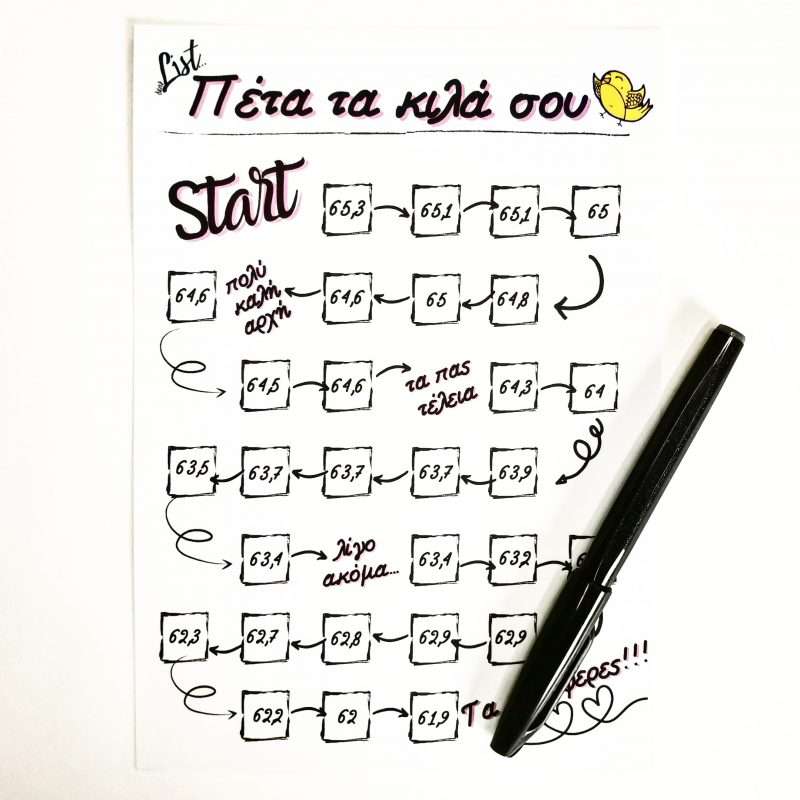 List...
Πέτα τα κιλά σου
Start
65,3 65,1 65,1 65
64,6 πολύ καλή αρχή 64,6 65 64,8
64,5 64,6 τα πας τέλεια 64,3 64
63,5 63,7 63,7 63,7 63,9
63,4 λίγο ακόμα... 63,4 632
62,3 62,7 62,8 62,9 62,9
62,2 62 61,9 Τα